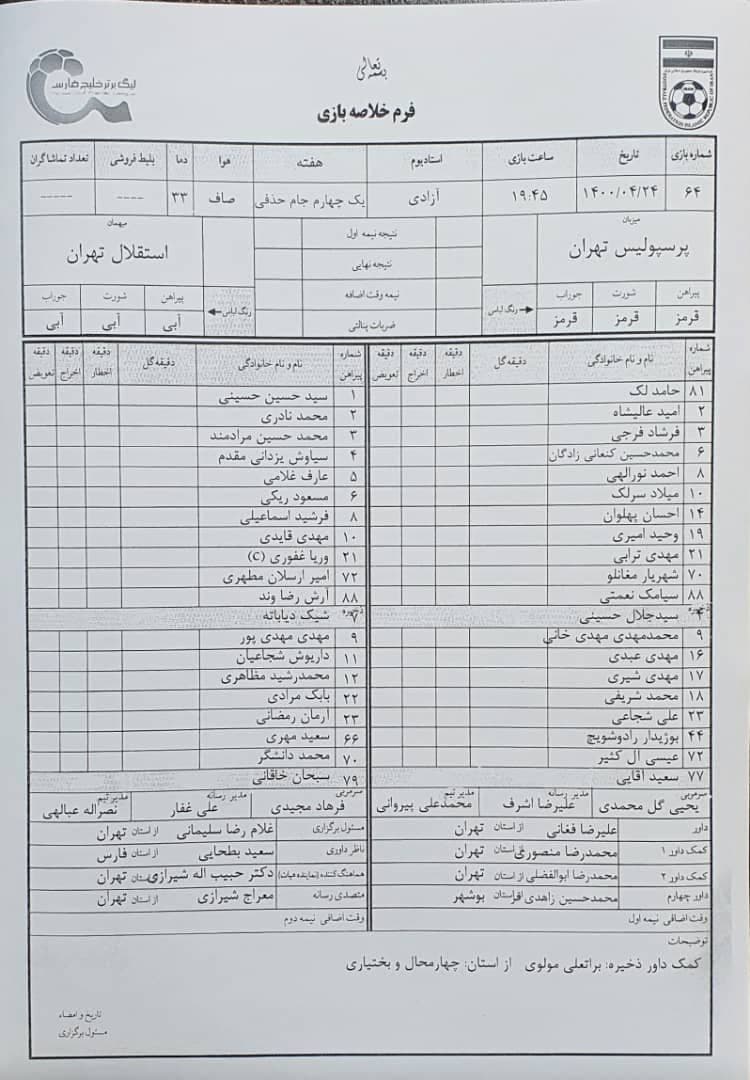 بسمه تعالی
لیگ برتر خلیج فارس
FOOTBALL FEDERATION ISLAMIC REPUBLIC OF IRAN
فرم خلاصه بازی
شماره بازی تاریخ ساعت بازی استادیوم هفته هوا دما بلیط فروشی تعداد تماشاگران
۶۴ ۱۴۰۰/۰۴/۲۴ ۱۹:۴۵ آزادی یک چهارم جام حذفی صاف ۳۳ ---- -----
میزبان
پرسپولیس تهران
پیراهن شورت جوراب
قرمز قرمز قرمز
رنگ لباس
نتیجه نیمه اول
نتیجه نهایی
نیمه وقت اضافه
ضربات پنالتی
میهمان
استقلال تهران
رنگ لباس
پیراهن شورت جوراب
آبی آبی آبی
شماره پیراهن نام و نام خانوادگی دقیقه گل دقیقه اخطار دقیقه اخراج دقیقه تعویض
۸۱ حامد لک
۲ امید عالیشاه
۳ فرشاد فرجی
۶ محمدحسین کنعانی زادگان
۸ احمد نورالهی
۱۰ میلاد سرلک
۱۴ احسان پهلوان
۱۹ وحید امیری
۲۱ مهدی ترابی
۷۰ شهریار مغانلو
۸۸ سیامک نعمتی
ذخیره
۴ سیدجلال حسینی
۹ محمدمهدی مهدی خانی
۱۶ مهدی عبدی
۱۷ مهدی شیری
۱۸ محمد شریفی
۲۳ علی شجاعی
۴۴ بوژیدار رادوشویچ
۷۲ عیسی آل کثیر
۷۷ سعید آقایی
شماره پیراهن نام و نام خانوادگی دقیقه گل دقیقه اخطار دقیقه اخراج دقیقه تعویض
۱ سید حسین حسینی
۲ محمد نادری
۳ محمد حسین مرادمند
۴ سیاوش یزدانی مقدم
۵ عارف غلامی
۶ مسعود ریگی
۸ فرشید اسماعیلی
۱۰ مهدی قایدی
۲۱ وریا غفوری (C)
۷۲ امیر ارسلان مطهری
۸۸ آرش رضا وند
ذخیره
۷ شیک دیاباته
۹ مهدی مهدی پور
۱۱ داریوش شجاعیان
۱۲ محمدرشید مظاهری
۲۲ بابک مرادی
۲۳ آرمان رمضانی
۶۶ سعید مهری
۷۰ محمد دانشگر
۷۹ سبحان خاقانی
سرمربی یحیی گل محمدی مدیر رسانه علیرضا اشرف مدیر تیم محمدعلی پیروانی
سرمربی فرهاد مجیدی مدیر رسانه علی غفار مدیر تیم نصراله عبالهی
داور علیرضا فغانی از استان تهران
کمک داور ۱ محمدرضا منصوری از استان تهران
کمک داور ۲ محمدرضا ابوالفضلی از استان تهران
داور چهارم محمدحسین زاهدی فر از استان بوشهر
وقت اضافی نیمه اول
مسئول برگزاری غلام رضا سلیمانی از استان تهران
ناظر داوری سعید بطحایی از استان فارس
هماهنگ کننده (نماینده هیات) دکتر حبیب اله شیرازی از استان تهران
متصدی رسانه معراج شیرازی از استان تهران
وقت اضافی نیمه دوم
توضیحات
کمک داور ذخیره: براتعلی مولوی از استان: چهارمحال و بختیاری
تاریخ و امضاء
مسئول برگزاری